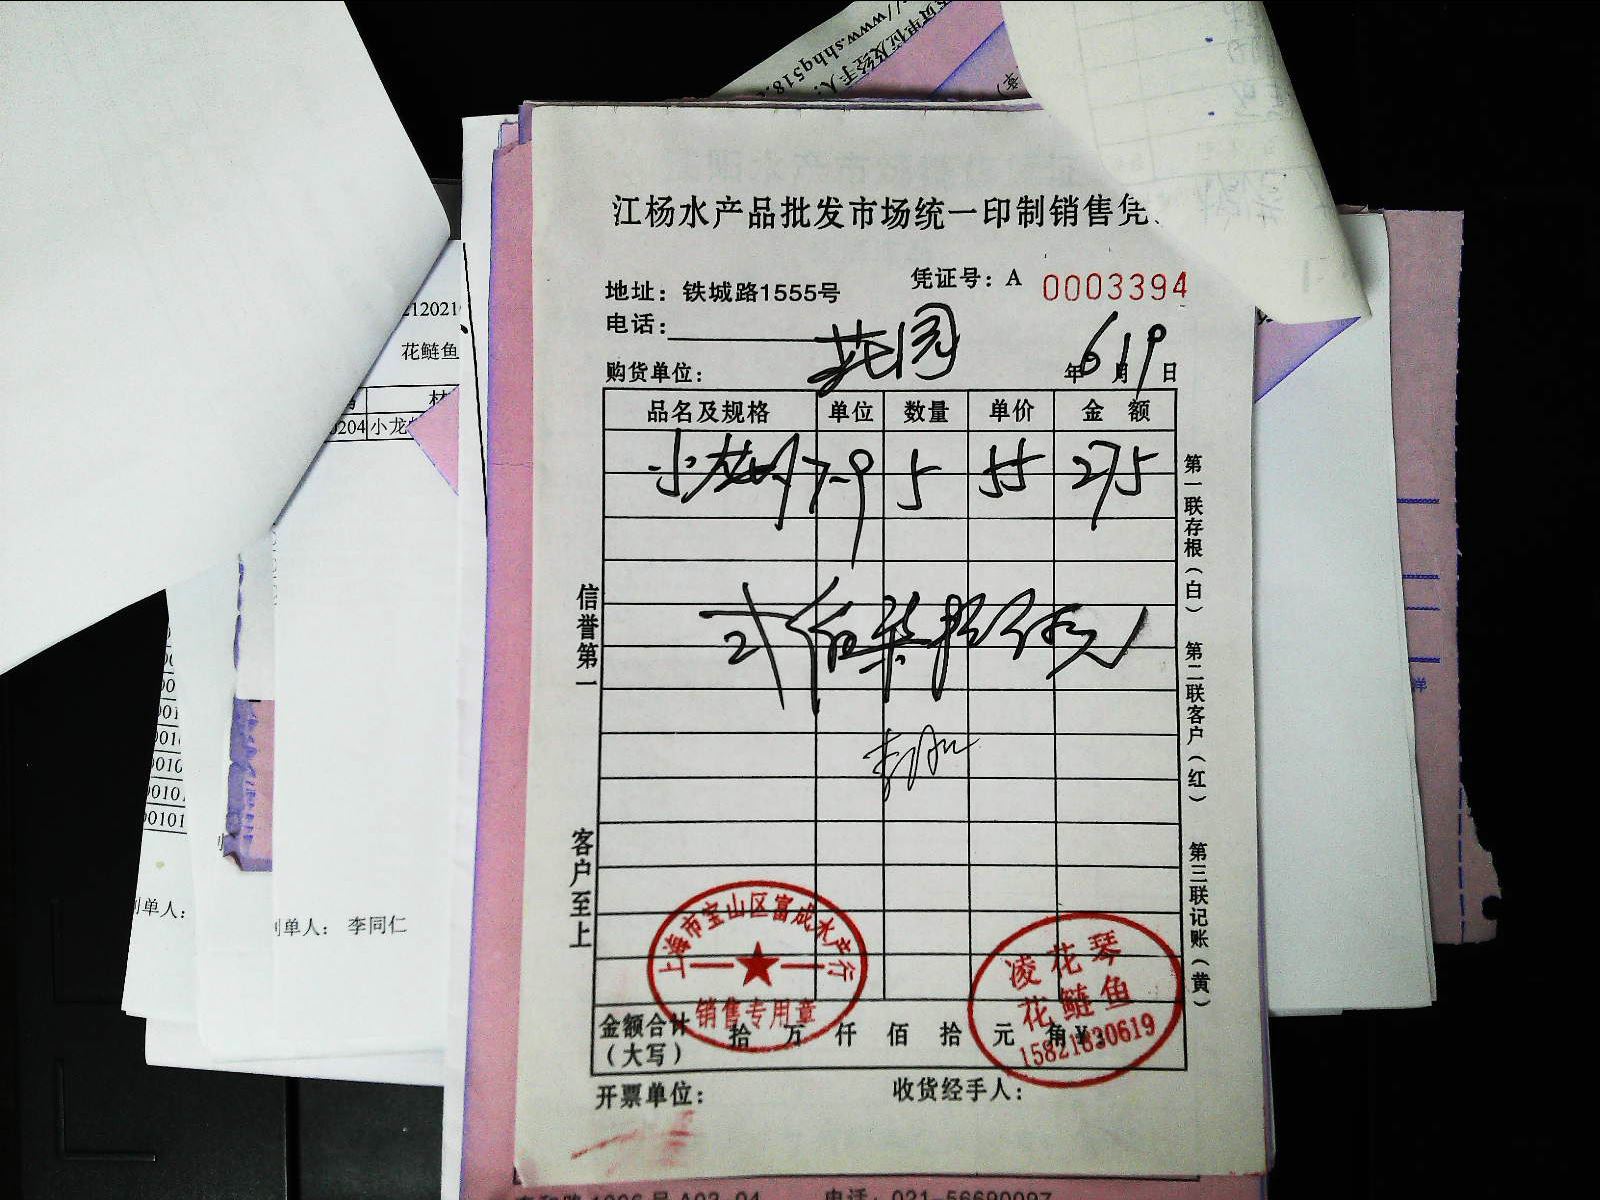 //www.shhq518.
江杨水产品批发市场统一印制销售凭
地址：铁城路1555号
凭证号：A 0003394
电话：
购货单位： 花园
年6月19日
品名及规格 单位 数量 单价 金额
小龙虾 7-9 5 55 275
贰佰柒拾伍元
信誉第一
客户至上
第一联存根（白）
第二联客户（红）
第三联记账（黄）
上海市宝山区富成水产行
销售专用章
凌花琴
花鲢鱼
15821830619
金额合计（大写） 拾 万 仟 佰 拾 元 角 ¥:
开票单位：
收货经手人：
2120210
花鲢鱼
0204 小龙
制单人：
制单人： 李同仁
00101
00101
电话：021-56690097